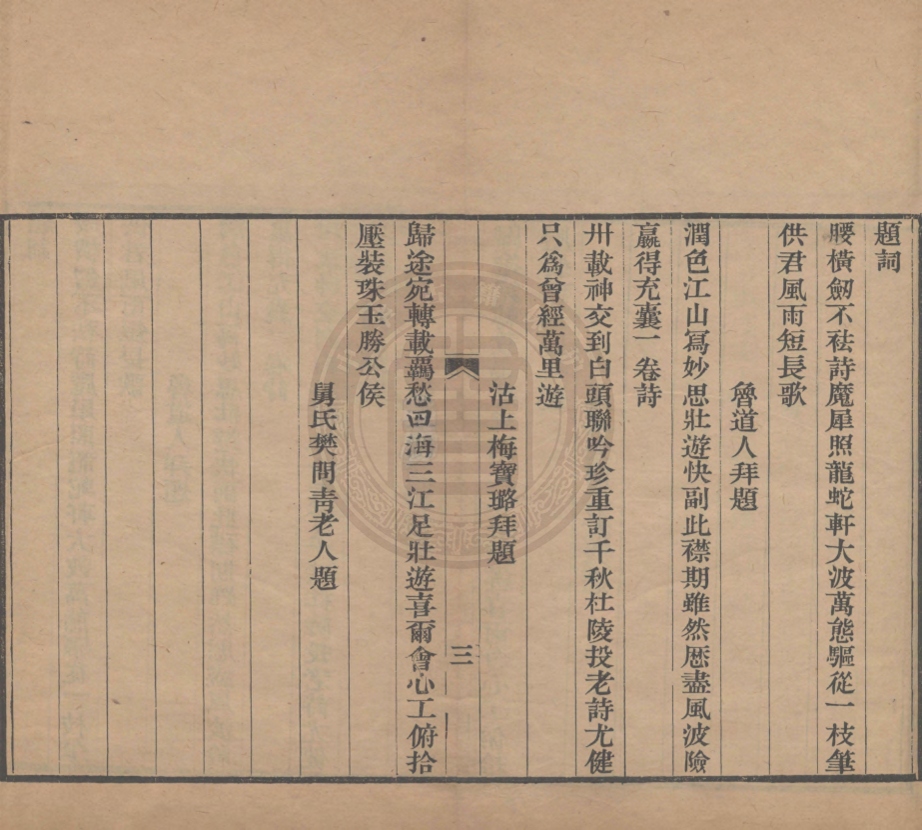 題詞
腰橫劒不祛詩魔犀照龍蛇軒大波萬態驅從一枝筆
供君風雨短長歌
魯道人拜題
潤色江山寫妙思壯遊快副此襟期雖然歷盡風波險
贏得充囊一卷詩
卅載神交到白頭聯吟珍重訂千秋杜陵投老詩尤健
只爲曾經萬里遊
沽上梅寶璐拜題
三
歸途宛轉載羈愁四海三江足壯遊喜爾會心工俯拾
壓裝珠玉勝公侯
舅氏樊問青老人題